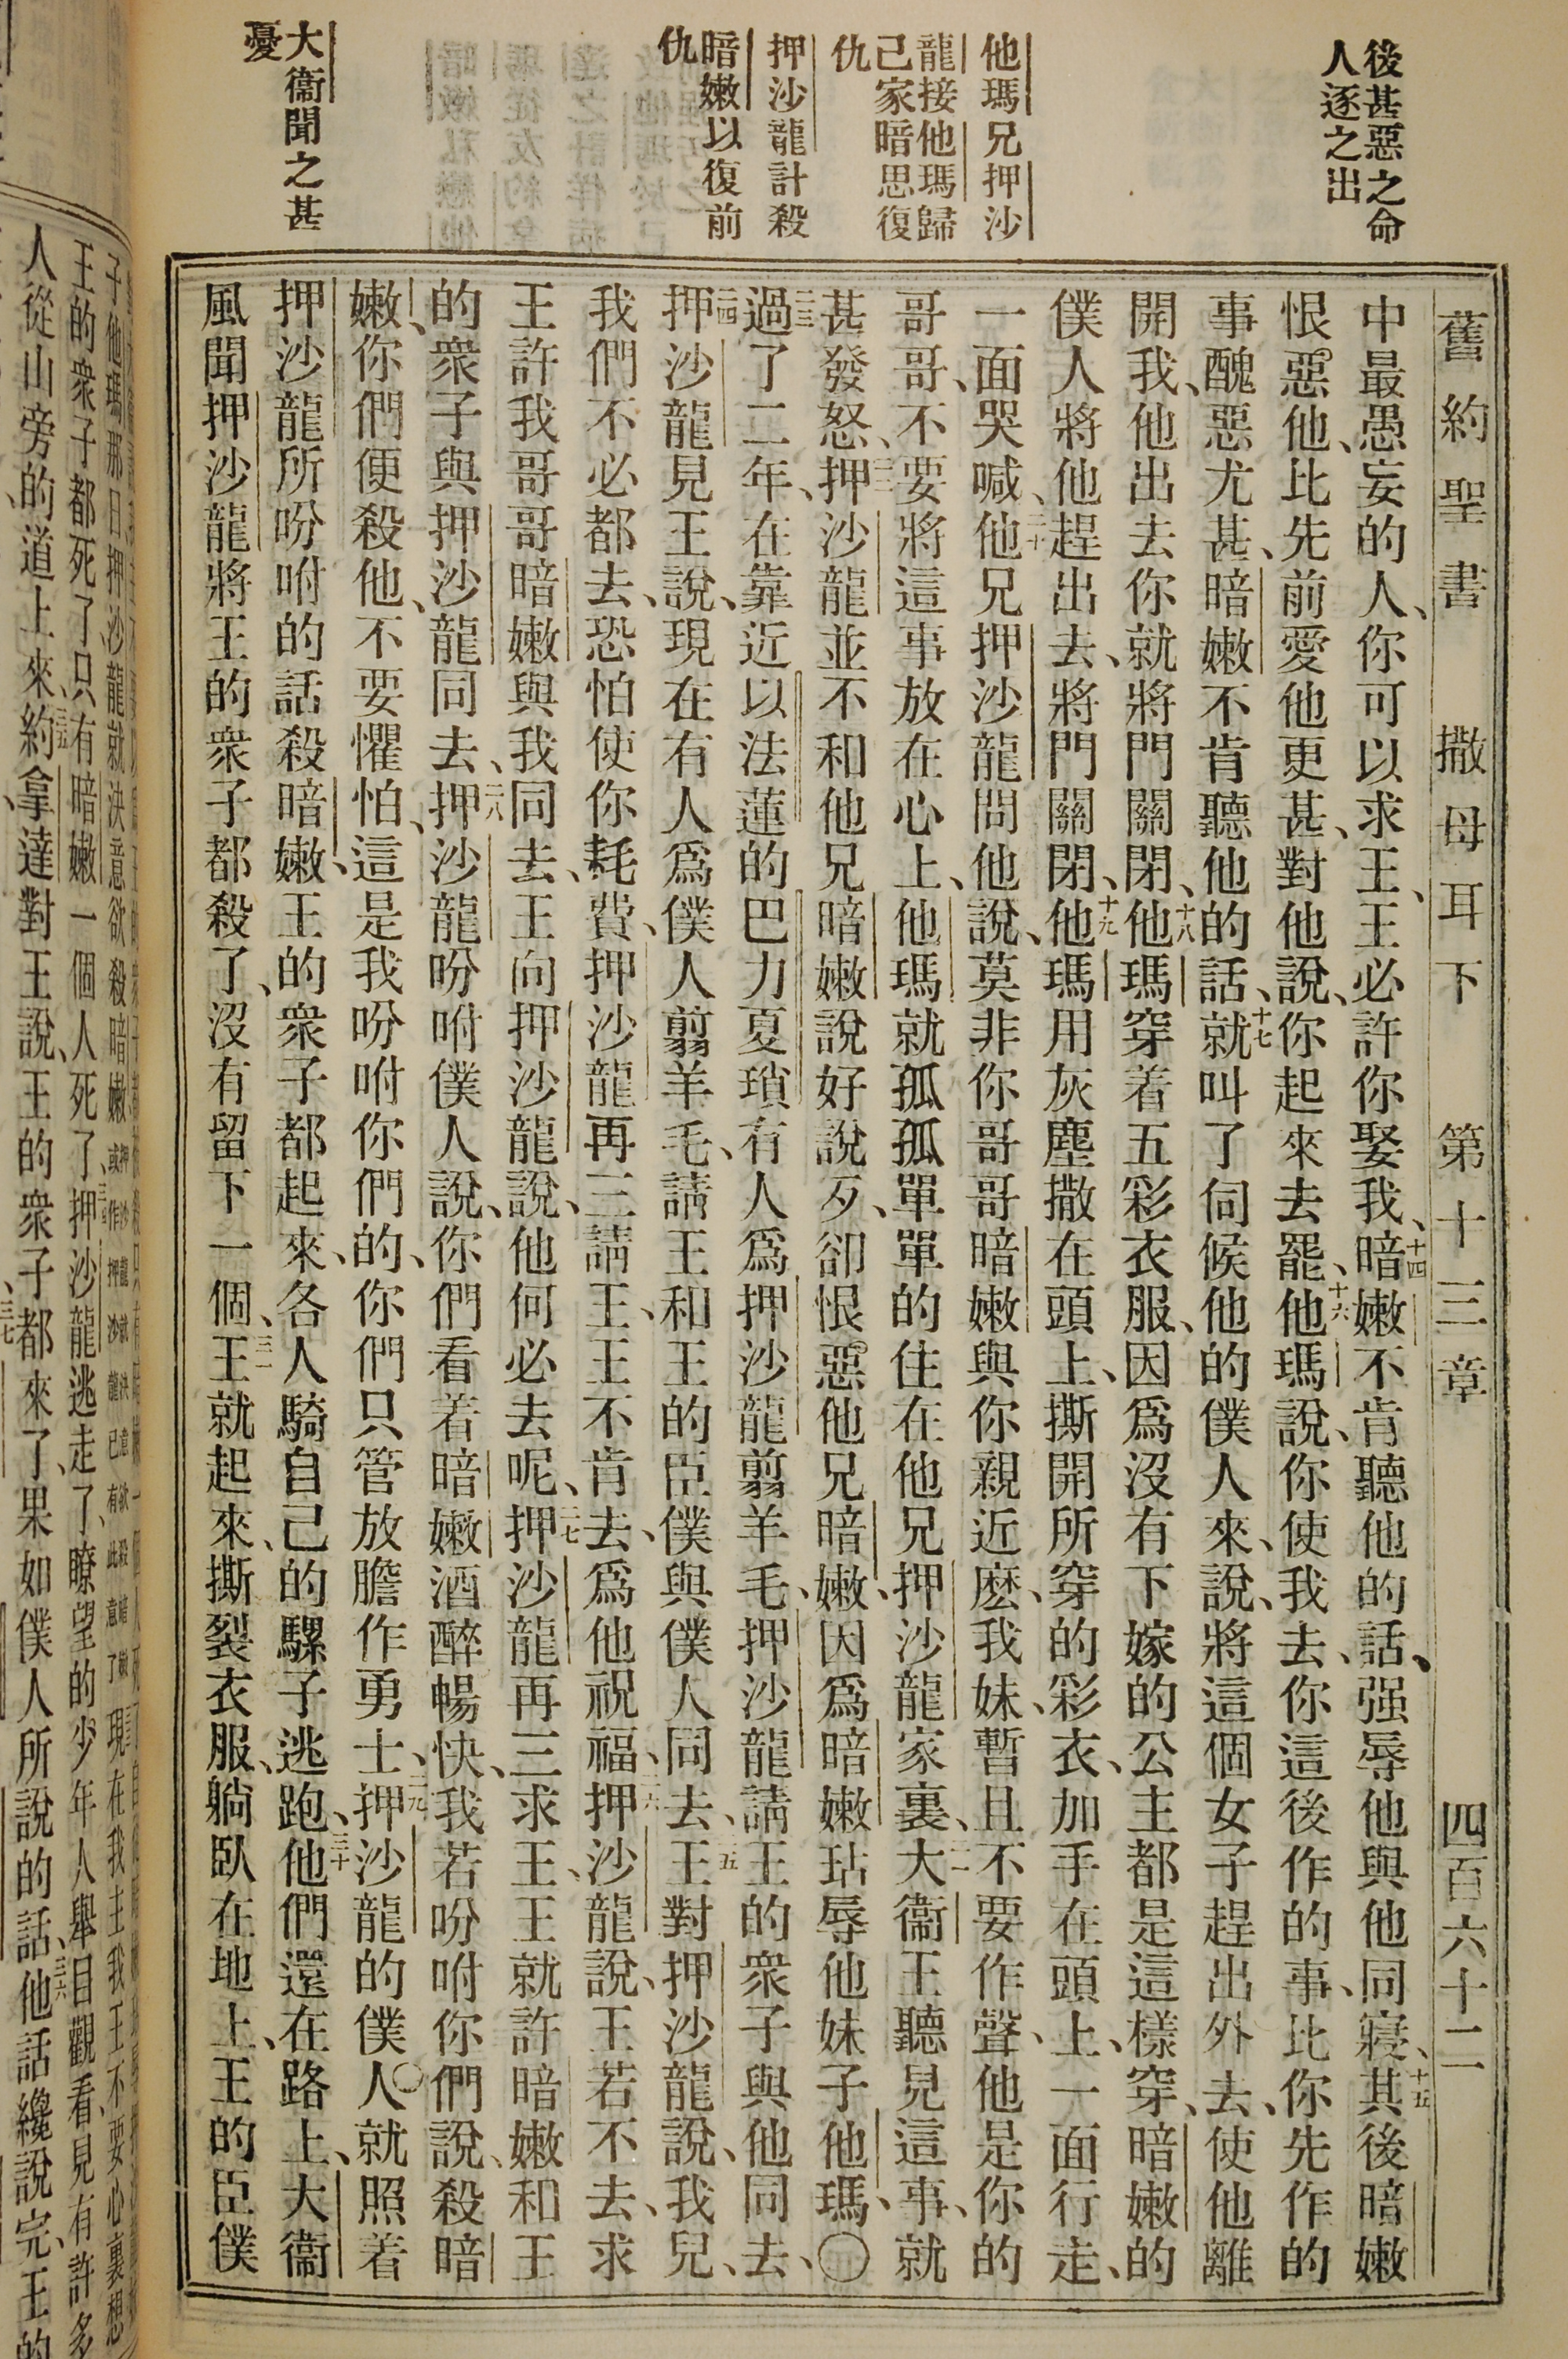 後甚惡之命
人逐之出
他瑪兄押沙
龍接他瑪歸
己家暗思復
仇
押沙龍計殺
暗嫩以復前
仇
大衞聞之甚
憂
舊約聖書 撒母耳下 第十三章 四百六十二
中最愚妄的人、你可以求王、王必許你娶我、十四暗嫩不肯聽他的話、强辱他與他同寢、十五其後暗嫩
恨惡他、比先前愛他更甚、對他說、你起來去罷、十六他瑪說、你使我去、你這後作的事、比你先作的
事醜惡尤甚、暗嫩不肯聽他的話、十七就叫了伺候他的僕人來、說、將這個女子趕出外去、使他離
開我、他出去你就將門關閉、十八他瑪穿着五彩衣服、因爲沒有下嫁的公主都是這樣穿、暗嫩的
僕人將他趕出去、將門關閉、十九他瑪用灰塵撒在頭上、撕開所穿的彩衣、加手在頭上、一面行走、
一面哭喊、二十他兄押沙龍問他說、莫非你哥哥暗嫩與你親近麽、我妹、暫且不要作聲、他是你的
哥哥、不要將這事放在心上、他瑪就孤孤單單的住在他兄押沙龍家裏、二一大衞王聽見這事、就
甚發怒、二二押沙龍並不和他兄暗嫩說好說歹、卻恨惡他兄暗嫩、因爲暗嫩玷辱他妹子他瑪、〇
二三過了二年、在靠近以法蓮的巴力夏瑣有人爲押沙龍翦羊毛、押沙龍請王的衆子與他同去、
二四押沙龍見王說、現在有人爲僕人翦羊毛、請王和王的臣僕與僕人同去、二五王對押沙龍說、我兒、
我們不必都去、恐怕使你耗費、押沙龍再三請王、王不肯去、爲他祝福、二六押沙龍說、王若不去、求
王許我哥哥暗嫩與我同去、王向押沙龍說、他何必去呢、二七押沙龍再三求王、王就許暗嫩和王
的衆子與押沙龍同去、二八押沙龍吩咐僕人說、你們看着暗嫩酒醉暢快、我若吩咐你們說、殺暗
嫩、你們便殺他、不要懼怕、這是我吩咐你們的、你們只管放膽作勇士、二九押沙龍的僕人〇就照着
押沙龍所吩咐的話殺暗嫩、王的衆子都起來、各人騎自己的騾子逃跑、三十他們還在路上、大衞
風聞押沙龍將王的衆子都殺了、沒有留下一個、三一王就起來、撕裂衣服、躺臥在地上、王的臣僕
王的衆子都死了、只有暗嫩一個人死了、押沙龍逃走了、瞭望的少年人舉目觀看、見有許多
人從山旁的道上來、三五約拿達對王說、王的衆子都來了、果如僕人所說的話、三六他話纔說完、王的